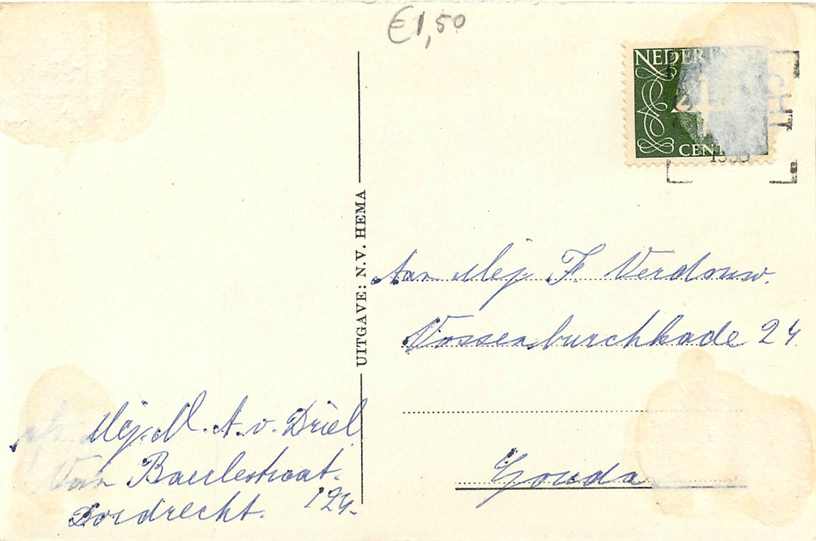 €1,50
NEDER
CEN
UITGAVE: N.V. HEMA
Aan Mej F. Verdouw.
Vossenburchkade 24
Gouda
Mej. M. A. v. Driel
Van Baerlestraat.
Dordrecht. 124.